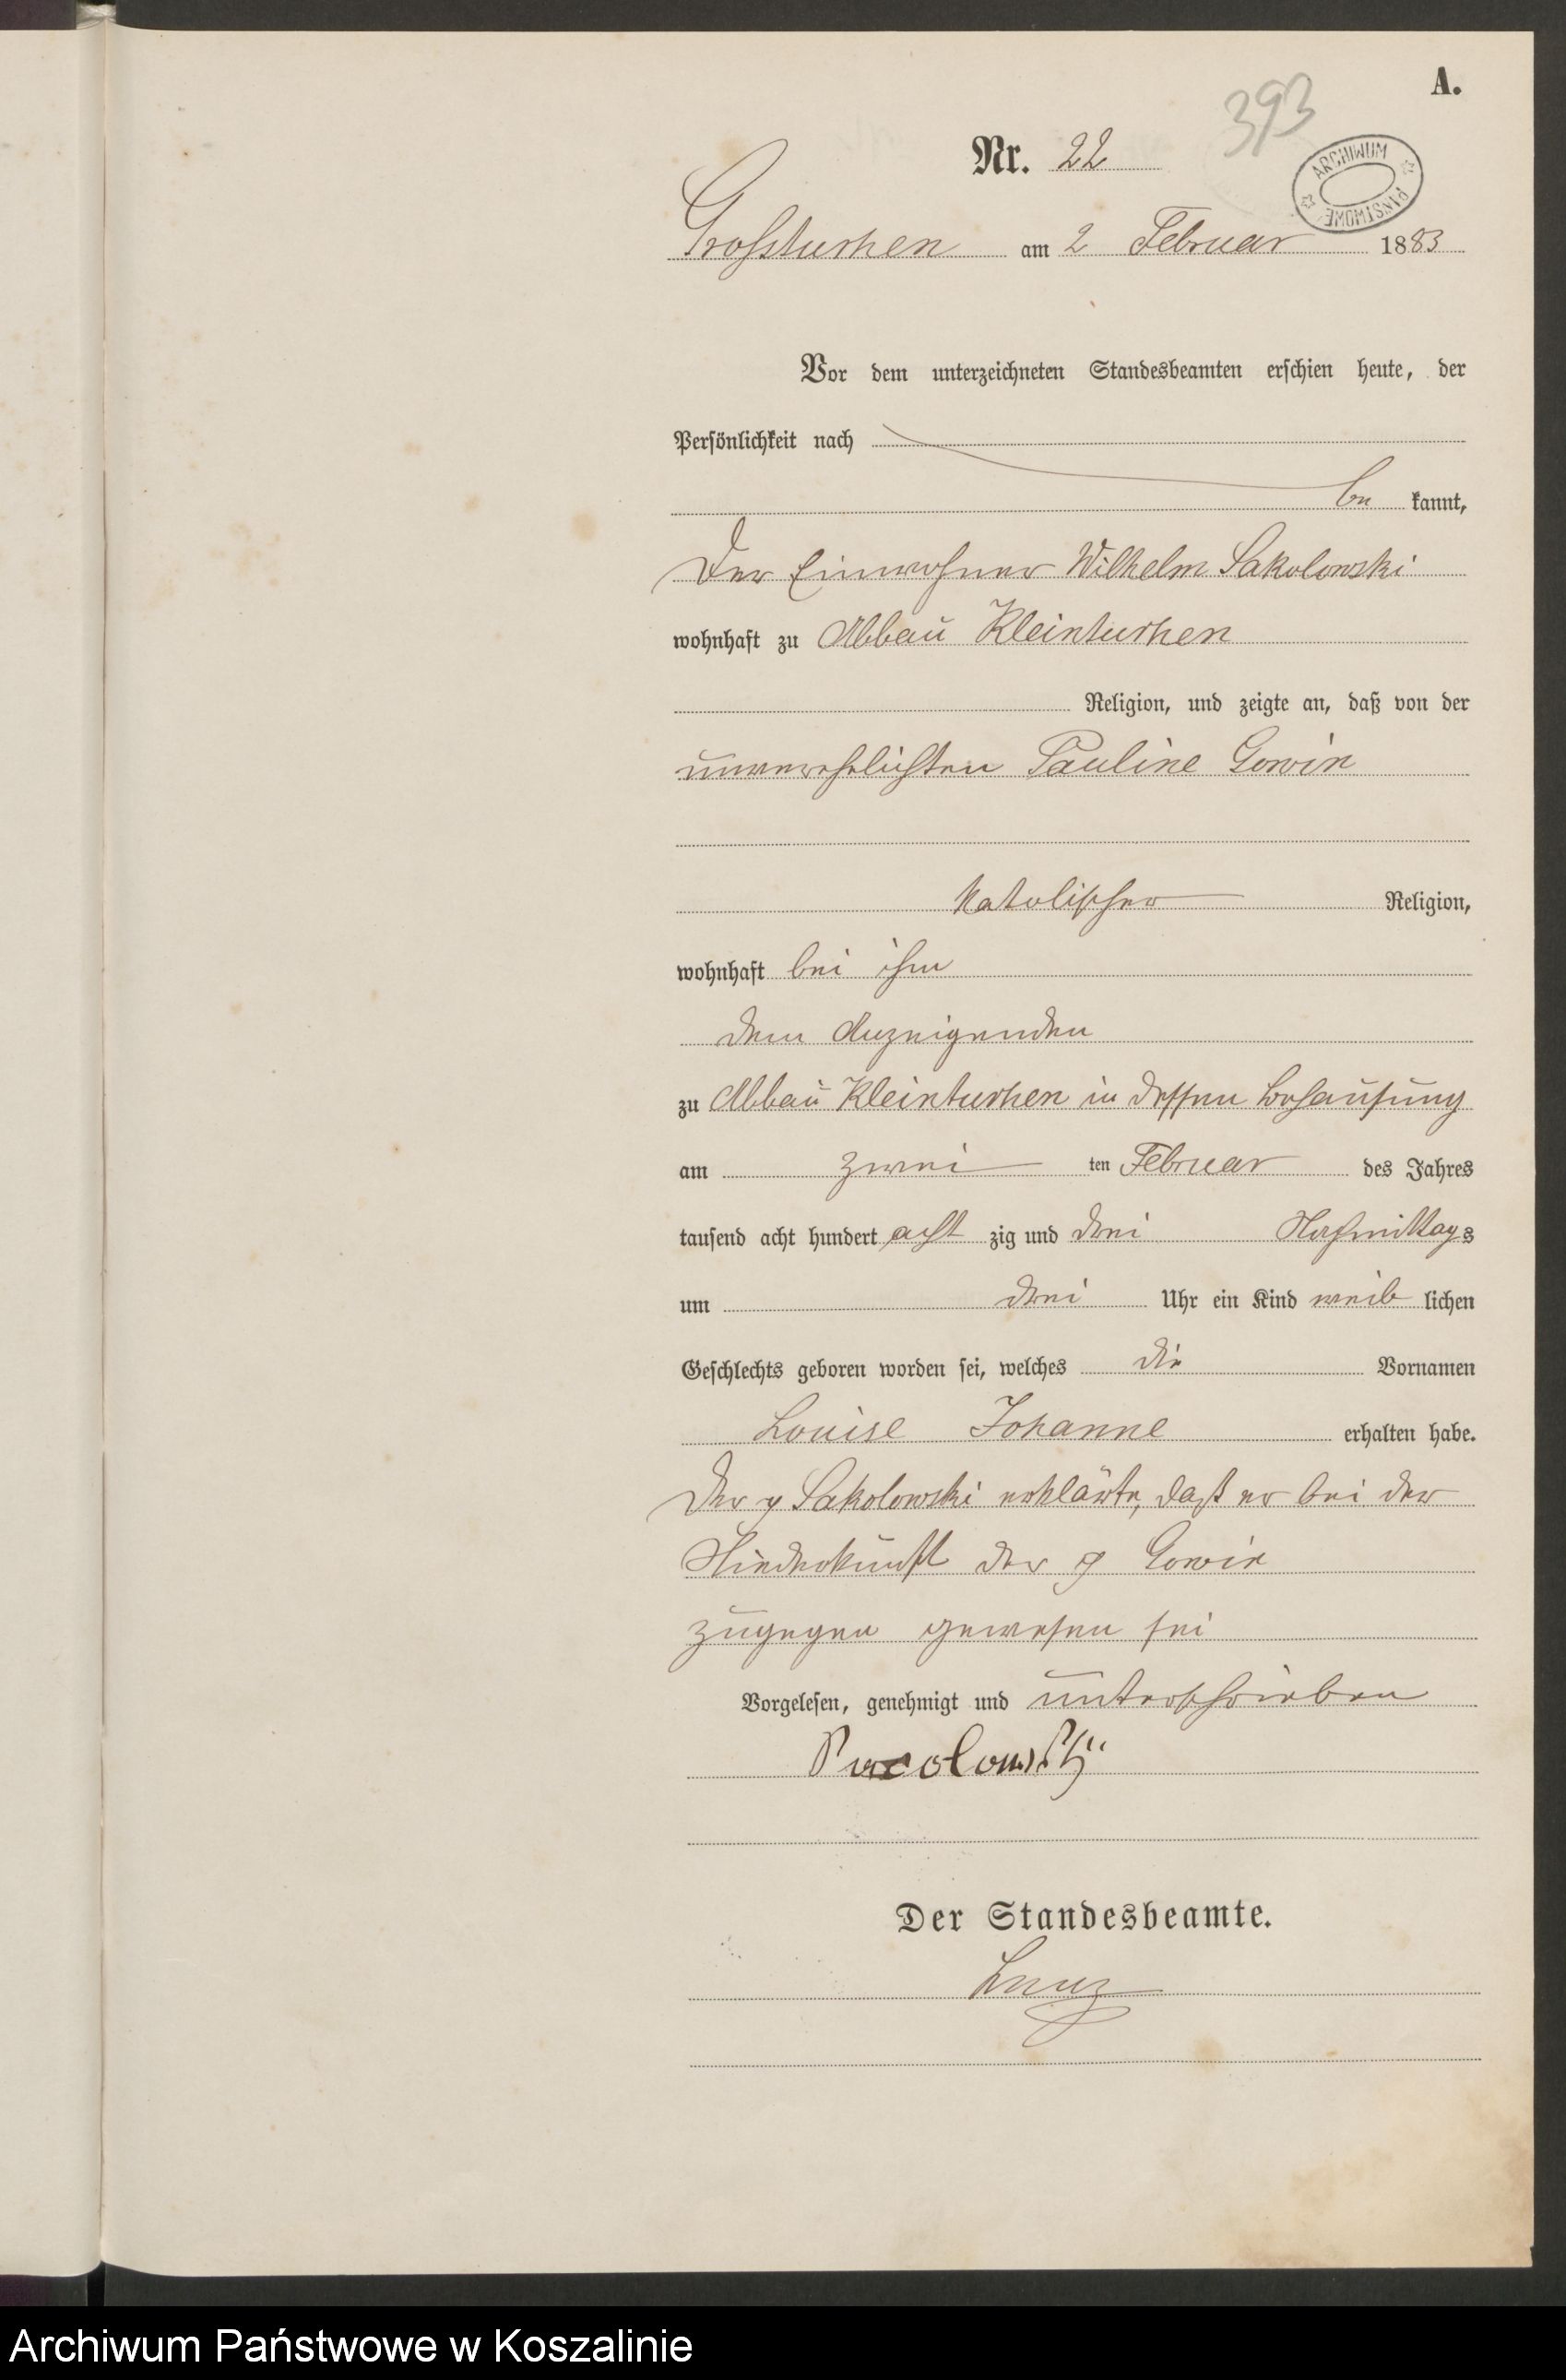 A.
393
Nr. 22
ARCHIWUM PAŃSTWOWE
Grossturhen am 2 Februar 1883
Vor dem unterzeichneten Standesbeamten erschien heute, der
Persönlichkeit nach
be kannt,
der Einwohner Wilhelm Sakolowski
wohnhaft zu Abbau Kleinturhen
Religion, und zeigte an, daß von der
unverehelichten Pauline Gowin
katolischer Religion,
wohnhaft bei ihm
dem Anzeigenden
zu Abbau Kleinturhen in dessen Behausung
am zwei ten Februar des Jahres
tausend acht hundert acht zig und drei Nachmittags
um drei Uhr ein Kind weib lichen
Geschlechts geboren worden sei, welches die Vornamen
Louise Johanne erhalten habe.
Der p Sakolowski erklärte, daß er bei der
Niederkunft der p Gowin
zugegen gewesen sei
Vorgelesen, genehmigt und unterschrieben
Der Standesbeamte.
Archiwum Państwowe w Koszalinie